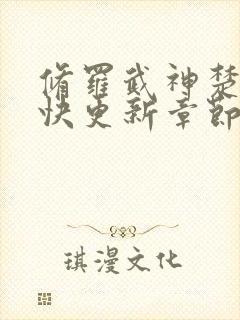 脩羅武神楚
快更新章節
琪漫文化